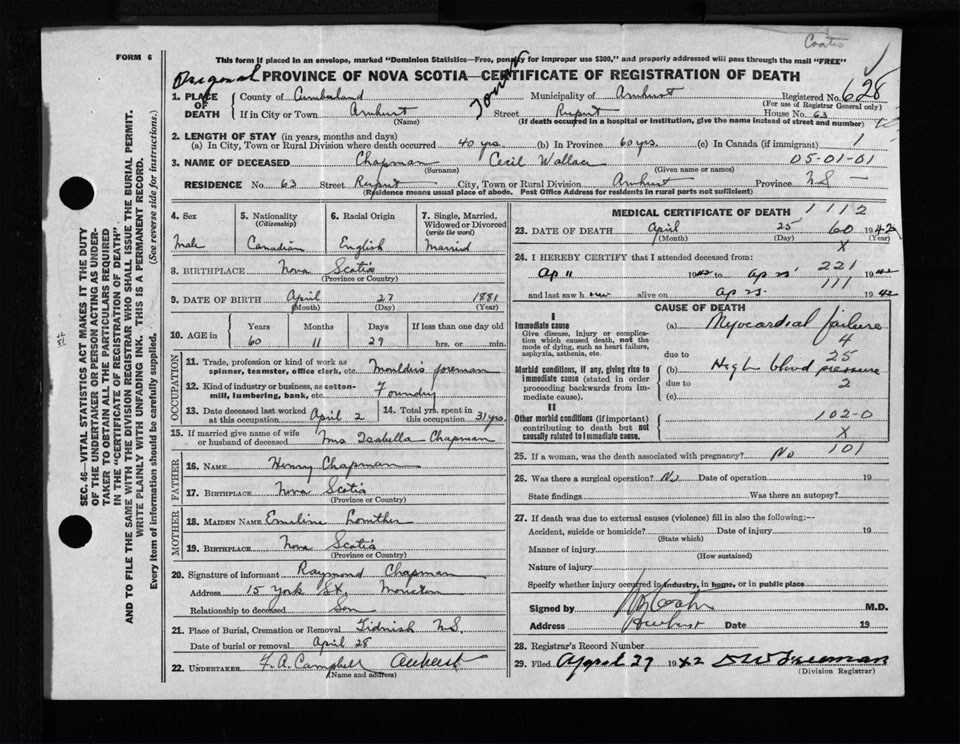 Coates
FORM 6
This form if placed in an envelope, marked "Dominion Statistics—Free, penalty for improper use $300," and properly addressed will pass through the mail "FREE"
Original
PROVINCE OF NOVA SCOTIA—CERTIFICATE OF REGISTRATION OF DEATH
1. PLACE OF DEATH County of Cumberland Municipality of Amherst Registered No. 628
(For use of Registrar General only)
If in City or Town Amherst (Name) Street Rupert House No. 63
(If death occurred in a hospital or institution, give the name instead of street and number)
2. LENGTH OF STAY (in years, months and days)
(a) In City, Town or Rural Division where death occurred 40 yrs. (b) In Province 60 yrs. (c) In Canada (if immigrant) 1
3. NAME OF DECEASED Chapman Cecil Wallace 05-01-01
(Surname) (Given name or names)
RESIDENCE No. 63 Street Rupert City, Town or Rural Division Amherst Province NS
(Residence means usual place of abode. Post Office Address for residents in rural parts not sufficient)
4. Sex
Male
5. Nationality
(Citizenship)
Canadian
6. Racial Origin
English
7. Single, Married, Widowed or Divorced
(write the word)
Married
8. BIRTHPLACE Nova Scotia
(Province or Country)
9. DATE OF BIRTH April 27 1881
(Month) (Day) (Year)
10. AGE in Years Months Days If less than one day old
60 11 29 hrs. or min.
OCCUPATION
11. Trade, profession or kind of work as spinner, teamster, office clerk, etc. Moulder's foreman
12. Kind of industry or business, as cotton-mill, lumbering, bank, etc. Foundry
13. Date deceased last worked at this occupation April 2
14. Total yrs. spent in this occupation 31 yrs.
15. If married give name of wife or husband of deceased Mrs Isabella Chapman
FATHER
16. NAME Henry Chapman
17. BIRTHPLACE Nova Scotia
(Province or Country)
MOTHER
18. MAIDEN NAME Emeline Lowther
19. BIRTHPLACE Nova Scotia
(Province or Country)
20. Signature of informant Raymond Chapman
Address 15 York St. Moncton
Relationship to deceased Son
21. Place of Burial, Cremation or Removal Tidnish N.S.
Date of burial or removal April 28
22. UNDERTAKER F. A. Campbell Amherst
(Name and address)
MEDICAL CERTIFICATE OF DEATH 1112
23. DATE OF DEATH April 25 60 1942
(Month) (Day) (Year)
X
24. I HEREBY CERTIFY that I attended deceased from:
Ap 11 1942 to ap 25 221 1942
111
and last saw h im alive on ap 25. 1942
CAUSE OF DEATH
I
Immediate cause
Give disease, injury or complication which caused death, not the mode of dying, such as heart failure, asphyxia, asthenia, etc.
(a) Myocardial failure
4
due to 25
Morbid conditions, if any, giving rise to immediate cause (stated in order proceeding backwards from immediate cause).
(b) High blood pressure
due to 2
(c)
II
Other morbid conditions (if important) contributing to death but not causally related to immediate cause.
102-0
X
25. If a woman, was the death associated with pregnancy? No 101
26. Was there a surgical operation? No Date of operation 19
State findings Was there an autopsy?
27. If death was due to external causes (violence) fill in also the following:—
Accident, suicide or homicide? Date of injury 19
(State which)
Manner of injury
(How sustained)
Nature of injury
Specify whether injury occurred in industry, in home, or in public place
Signed by M.D.
Address Amherst Date 19
28. Registrar's Record Number
29. Filed April 29 1942 D W Freeman
(Division Registrar)
SEC. 46—VITAL STATISTICS ACT MAKES IT THE DUTY
OF THE UNDERTAKER OR PERSON ACTING AS UNDER-
TAKER TO OBTAIN ALL THE PARTICULARS REQUIRED
IN THE "CERTIFICATE OF REGISTRATION OF DEATH"
AND TO FILE THE SAME WITH THE DIVISION REGISTRAR WHO SHALL ISSUE THE BURIAL PERMIT.
WRITE PLAINLY WITH UNFADING INK. THIS IS A PERMANENT RECORD.
Every item of information should be carefully supplied. (See reverse side for instructions.)